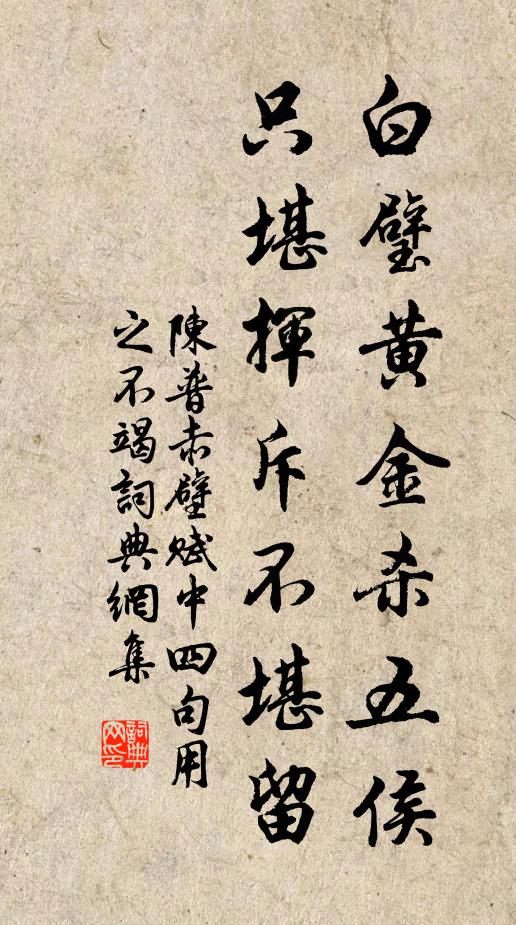 白璧黄金杀五侯
只堪揮斥不堪留
陳普赤壁赋中四句用
之不竭詞典網集
詞典网印